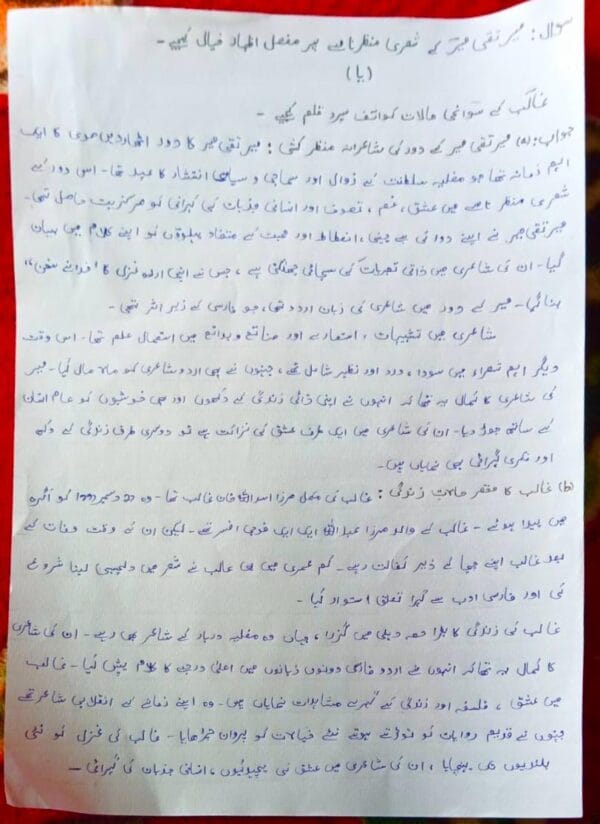 سوال: میر تقی میر کے شعری منظر نامے پر مفصل اظہار خیال کیجیے۔
(یا)
غالب کے سوانحی حالات کوائف سپرد قلم کیجیے۔
جواب: (a) میر تقی میر کے دور کی شاعرانہ منظر کشی: میر تقی میر کا دور اٹھاردیں صدی کا ایک
اہم زمانہ تھا جو مغلیہ سلطنت کے زوال اور سماجی و سیاسی انتشار کا عہد تھا۔ اس دور کے
شعری منظر نامے میں عشق، غم، تصوف اور انسانی جذبات کی گہرائی کو مرکزیت حاصل تھی۔
میر تقی میر نے اپنے دور کی بے چینی، انحطاط اور محبت کے متضاد پہلوؤں کو اپنے کلام میں بیان
کیا۔ ان کی شاعری میں ذاتی تجربات کی سچائی جھلکتی ہے، جس نے انہیں اردو غزل کا "خدائے سخن"
بنا گیا۔ میر کے دور میں شاعری کی زبان اردو تھی، جو فارسی کے زیر اثر تھی۔
شاعری میں تشبیہات، استعارے اور صنائع و بدائع میں استعمال علم تھا۔ اس وقت
دیگر اہم شعراء میں سودا، درد اور نظیر شامل تھے، جنہوں نے بھی اردو شاعری کو مالا مال کیا۔ میر
کی شاعری کا کمال یہ تھا کہ انہوں نے اپنی ذاتی زندگی کے دکھوں اور خوشیوں کو عام انسان
کے ساتھ جوڑ دیا۔ ان کی شاعری میں ایک طرف عشق کی نزاکت ہے تو دوسری طرف زندگی کے دکھ
اور فکری گہرائی بھی نمایاں ہیں۔
(b) غالب کا مختصر حالات زندگی: غالب کی مکمل مرزا اسد اللہ خان غالب تھا۔ وہ 27 دسمبر 1797 کو آگرہ
میں پیدا ہوئے۔ غالب کے والد مرزا عبد اللہ ایک فوجی افسر تھے۔ لیکن ان کے وقت وفات کے
بعد غالب اپنے چچا کے ذیر کفالت رہے۔ کم عمری میں ہی غالب نے شعر میں دلچسپی لینا شروع
کی اور فارسی ادب سے گہرا تعلق استوار کیا۔
غالب کی زندگی کا بڑا حصہ دہلی میں گزرا، جہاں وہ مغلیہ دربار کے شاعر بھی رہے۔ ان کی شاعری
کا کمال یہ تھا کہ انہوں نے اردو فارسی دونوں زبانوں میں اعلیٰ درجے کا کلام پیش کیا۔ غالب
میں عشق، فلسفہ اور زندگی کے گہرے مشاہدات نمایاں ہیں۔ وہ اپنے زمانے کے انقلابی شاعر تھے
جنہوں نے قدیم روایات کو توڑتے ہوئے نئے خیالات کو پروان چڑھایا۔ غالب کی غزل کو نئی
بلندیوں تک پہنچایا، ان کی شاعری میں عشق کی پیچیدگیوں، انسانی جذبات کی گہرائی۔